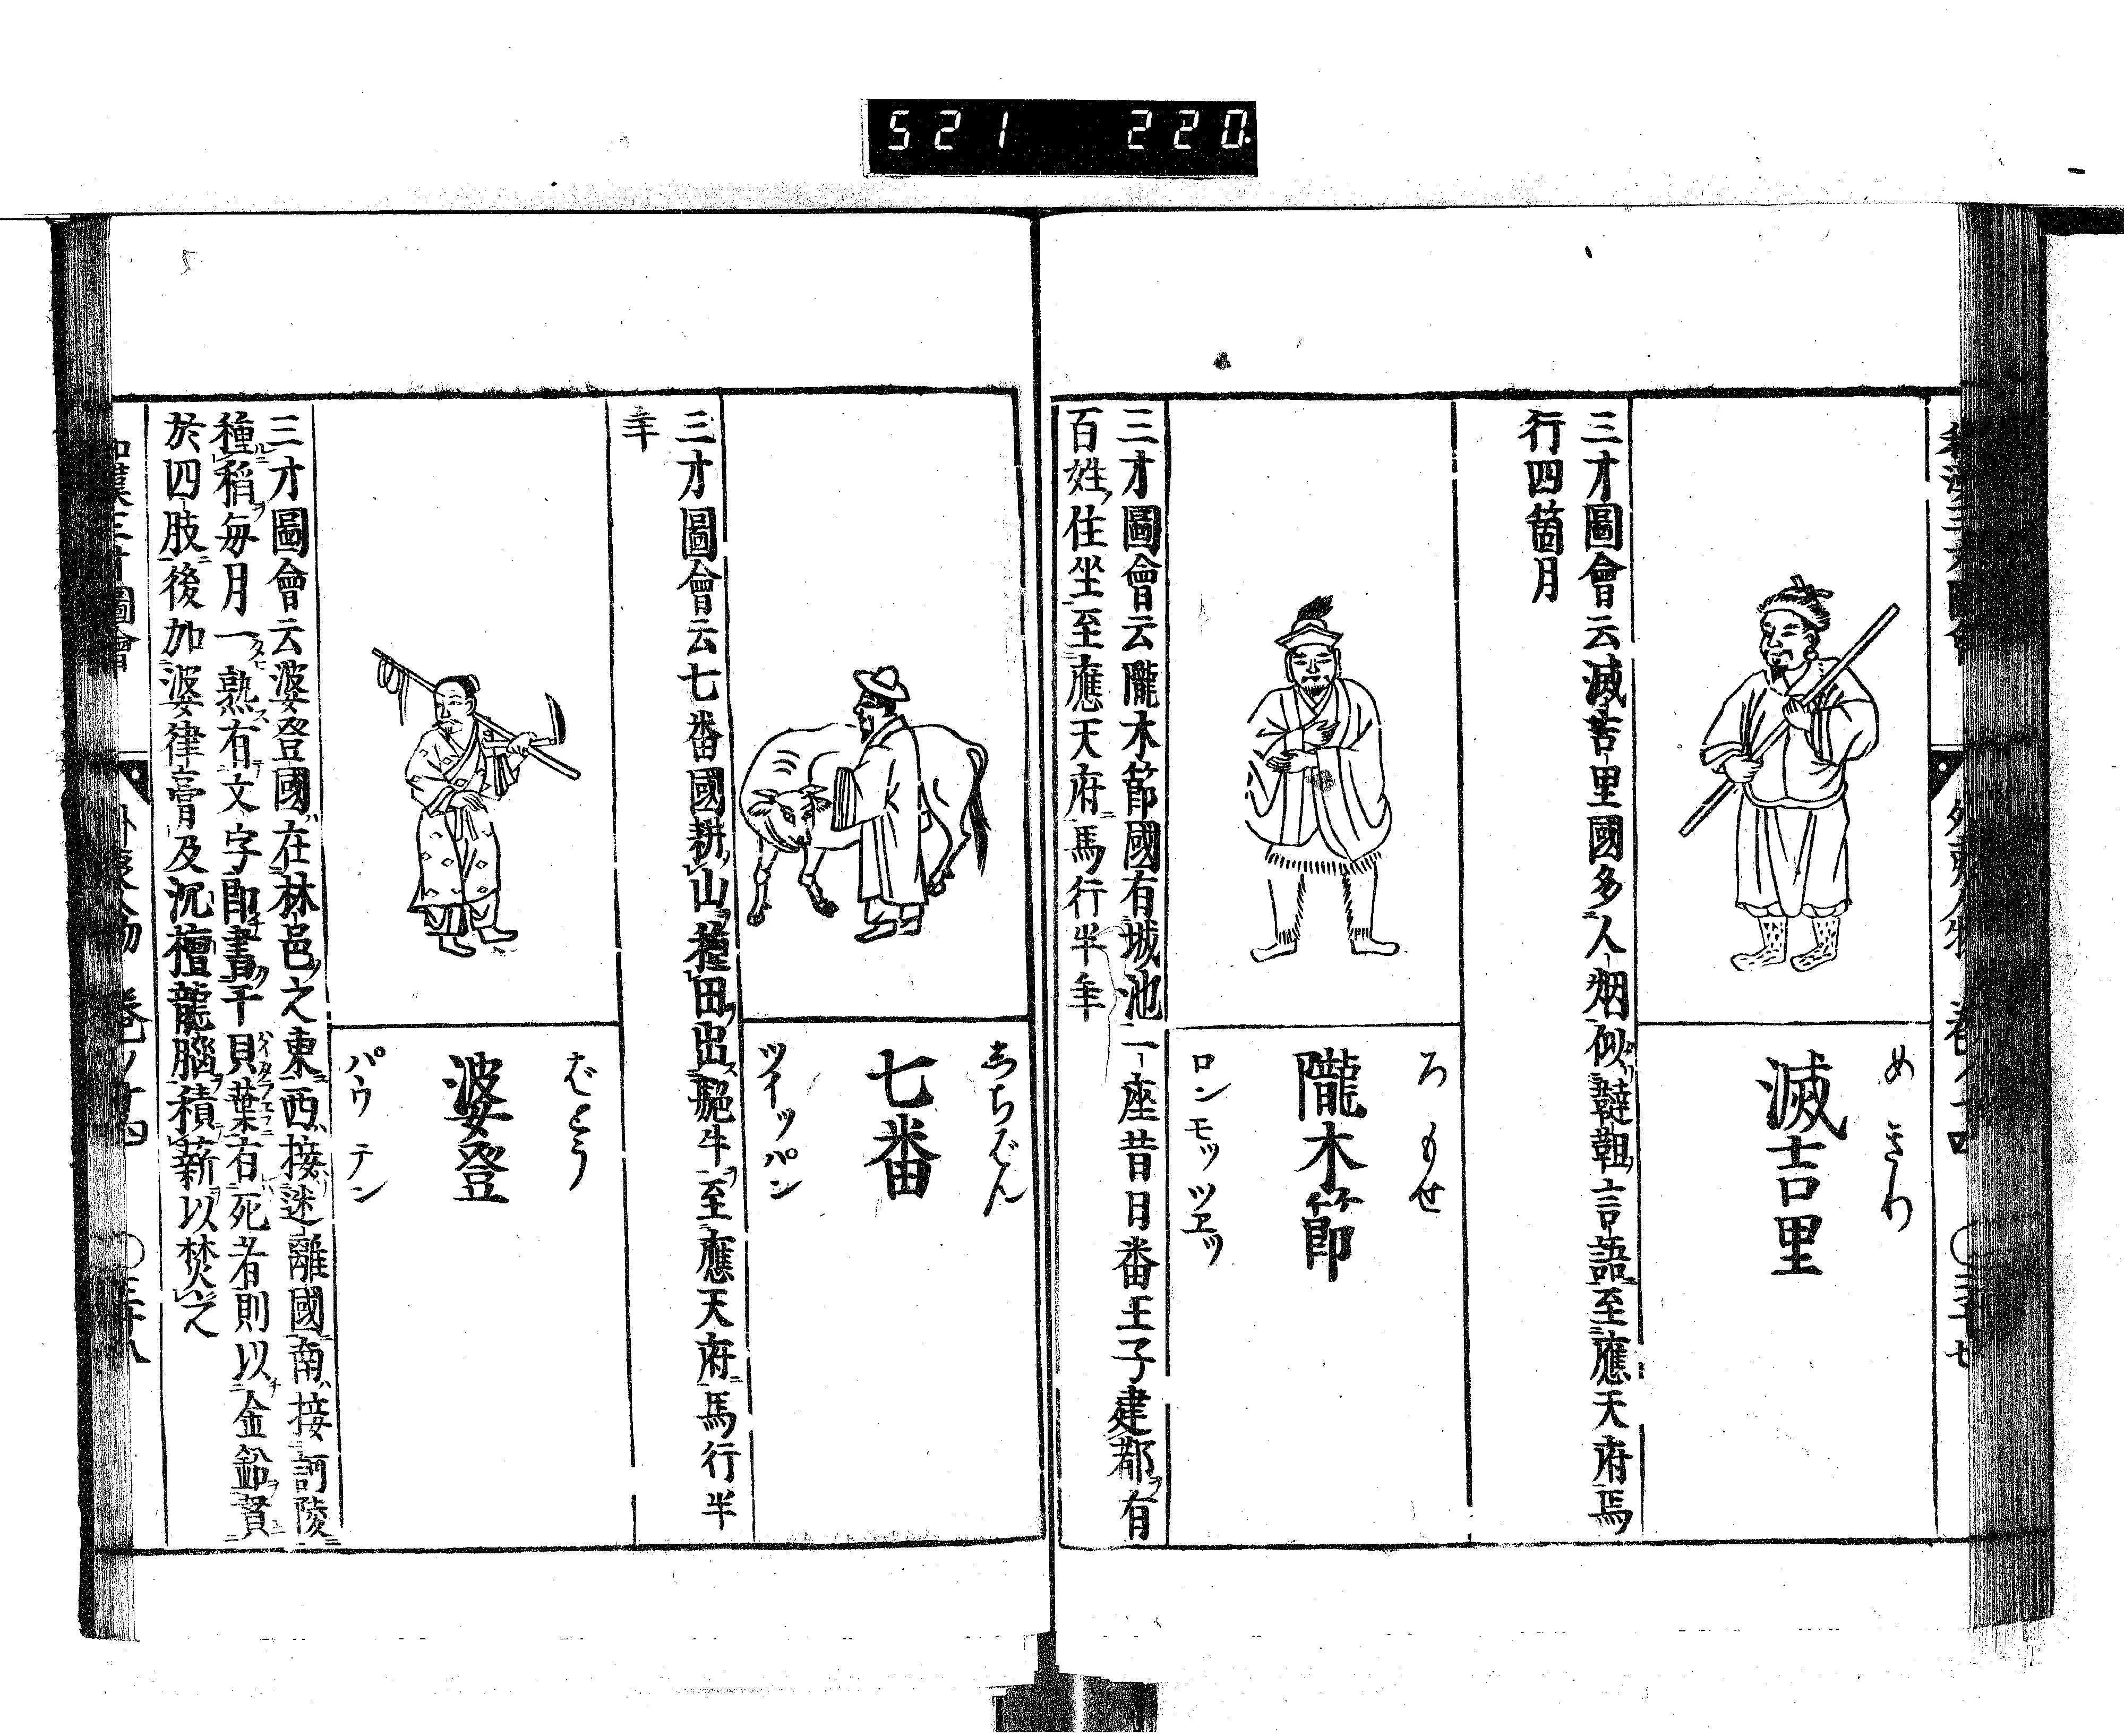 521 220
和漢三才圖會 外夷人物 卷ノ十四 ○三十七
めきり
滅吉里
三才圖會云滅吉里國多人烟似韃靼言語至應天府馬
行四箇月
ろもせ
隴木節
ロンモッツヱッ
三才圖會云隴木節國有城池二座昔日番王子建都有
百姓住坐至應天府馬行半年
しちばん
七番
ツイッパン
三才圖會云七番國耕山種田出駞牛至應天府馬行半
年
ばとう
婆登
パウテン
三才圖會云婆登國在林邑之東西接迷離國南接訶陵
種稻毎月一熟有文字即書于貝葉有死者則以金鈆貫
於四肢後加婆律膏及沉檀龍腦積薪以焚之
和漢三才圖會 外夷人物 卷ノ十四 ○三十八